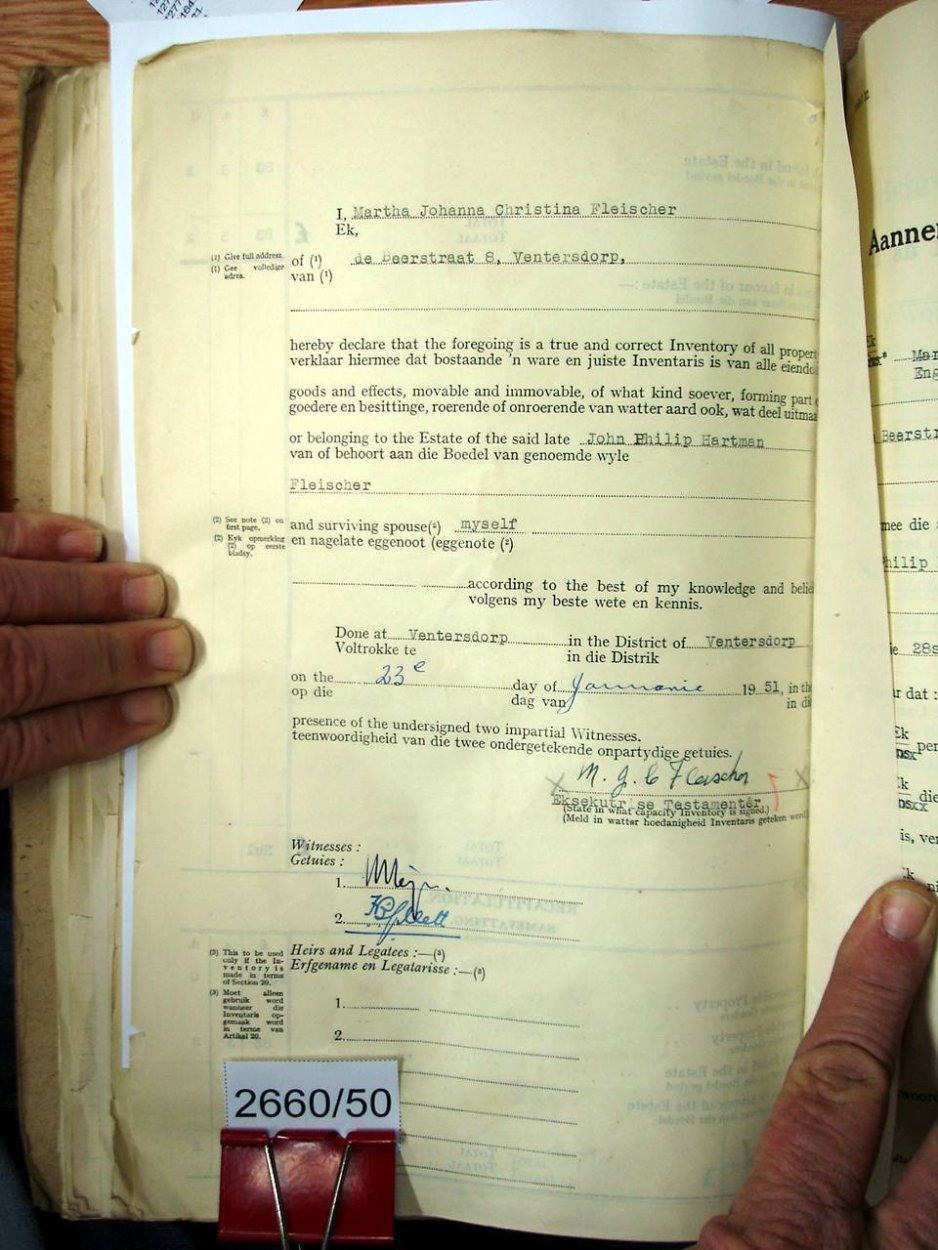 I, Martha Johanna Christina Fleischer
Ek,
(1) Give full address.
(1) Gee volledige adres.
of (¹) de Beerstraat 8, Ventersdorp,
van (¹)
hereby declare that the foregoing is a true and correct Inventory of all propert
verklaar hiermee dat bostaande 'n ware en juiste Inventaris is van alle eiendo
goods and effects, movable and immovable, of what kind soever, forming part
goedere en besittinge, roerende of onroerende van watter aard ook, wat deel uitmaa
or belonging to the Estate of the said late John Philip Hartman
van of behoort aan die Boedel van genoemde wyle
Fleischer
(2) See note (2) on
first page.
(2) Kyk opmerking
(2) op eerste
bladsy.
and surviving spouse(²) myself
en nagelate eggenoot (eggenote (²)
according to the best of my knowledge and belie
volgens my beste wete en kennis.
Done at Ventersdorp in the District of Ventersdorp
Voltrokke te in die Distrik
on the 23e day of Januarie 19 51, in the
op die dag van in di
presence of the undersigned two impartial Witnesses.
teenwoordigheid van die twee ondergetekende onpartydige getuies.
M. J. C Fleischer
Eksekutrise Testamentêr
(State in what capacity Inventory is signed.)
(Meld in watter hoedanigheid Inventaris geteken word
Witnesses :
Getuies :
1.
2.
Heirs and Legatees :—(³)
Erfgename en Legatarisse :—(³)
(3) This to be used
only if the In-
ventory is
made in terms
of Section 29.
(3) Moet alleen
gebruik word
wanneer die
Inventaris op-
gemaak word
in terme van
Artikel 29.
1.
2.
2660/50
Aanne
Mar
Eng
Beerstr
mee die
hilip
28s
r dat :
Ek
per
die
is, ver